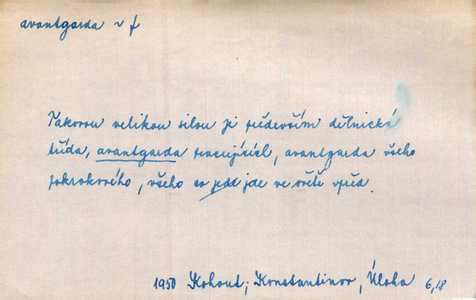 avantgarda v f
Takovou velikou silou je především dělnická
třída, avantgarda pracujících, avantgarda všeho
pokrokového, všeho co jde ve světě vpřed.
1950 Kohout; Konstantinov, Úloha 6,18